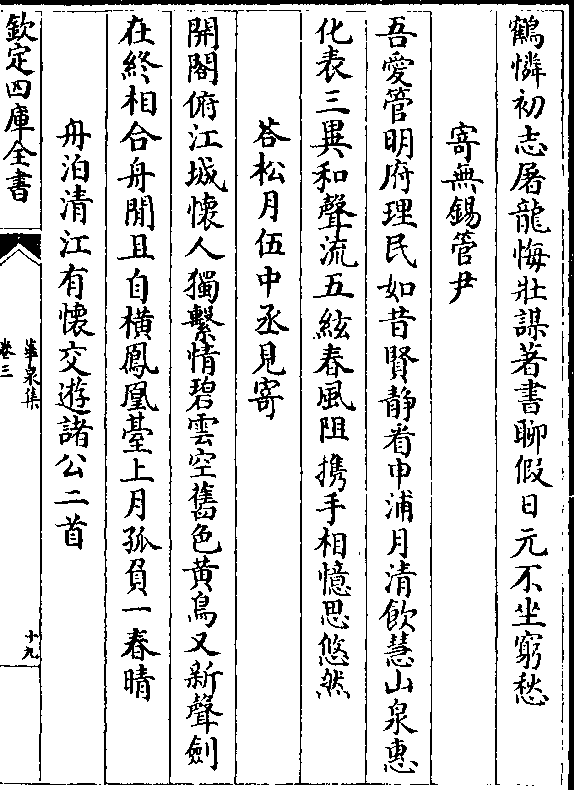 鶴憐初志屠龍悔壯謀著書聊假日元不坐窮愁
寄無錫管尹
吾愛管明府理民如昔賢靜看申浦月清飲慧山泉惠
化表三異和聲流五絃春風阻攜手相憶思悠然
答松月伍中丞見寄
開閣俯江城懷人獨繫情碧雲空舊色黃鳥又新聲劍
在終相合舟閒且自橫鳳凰臺上月孤負一春晴
舟泊清江有懷交遊諸公二首
欽定四庫全書
華泉集
卷三
十九